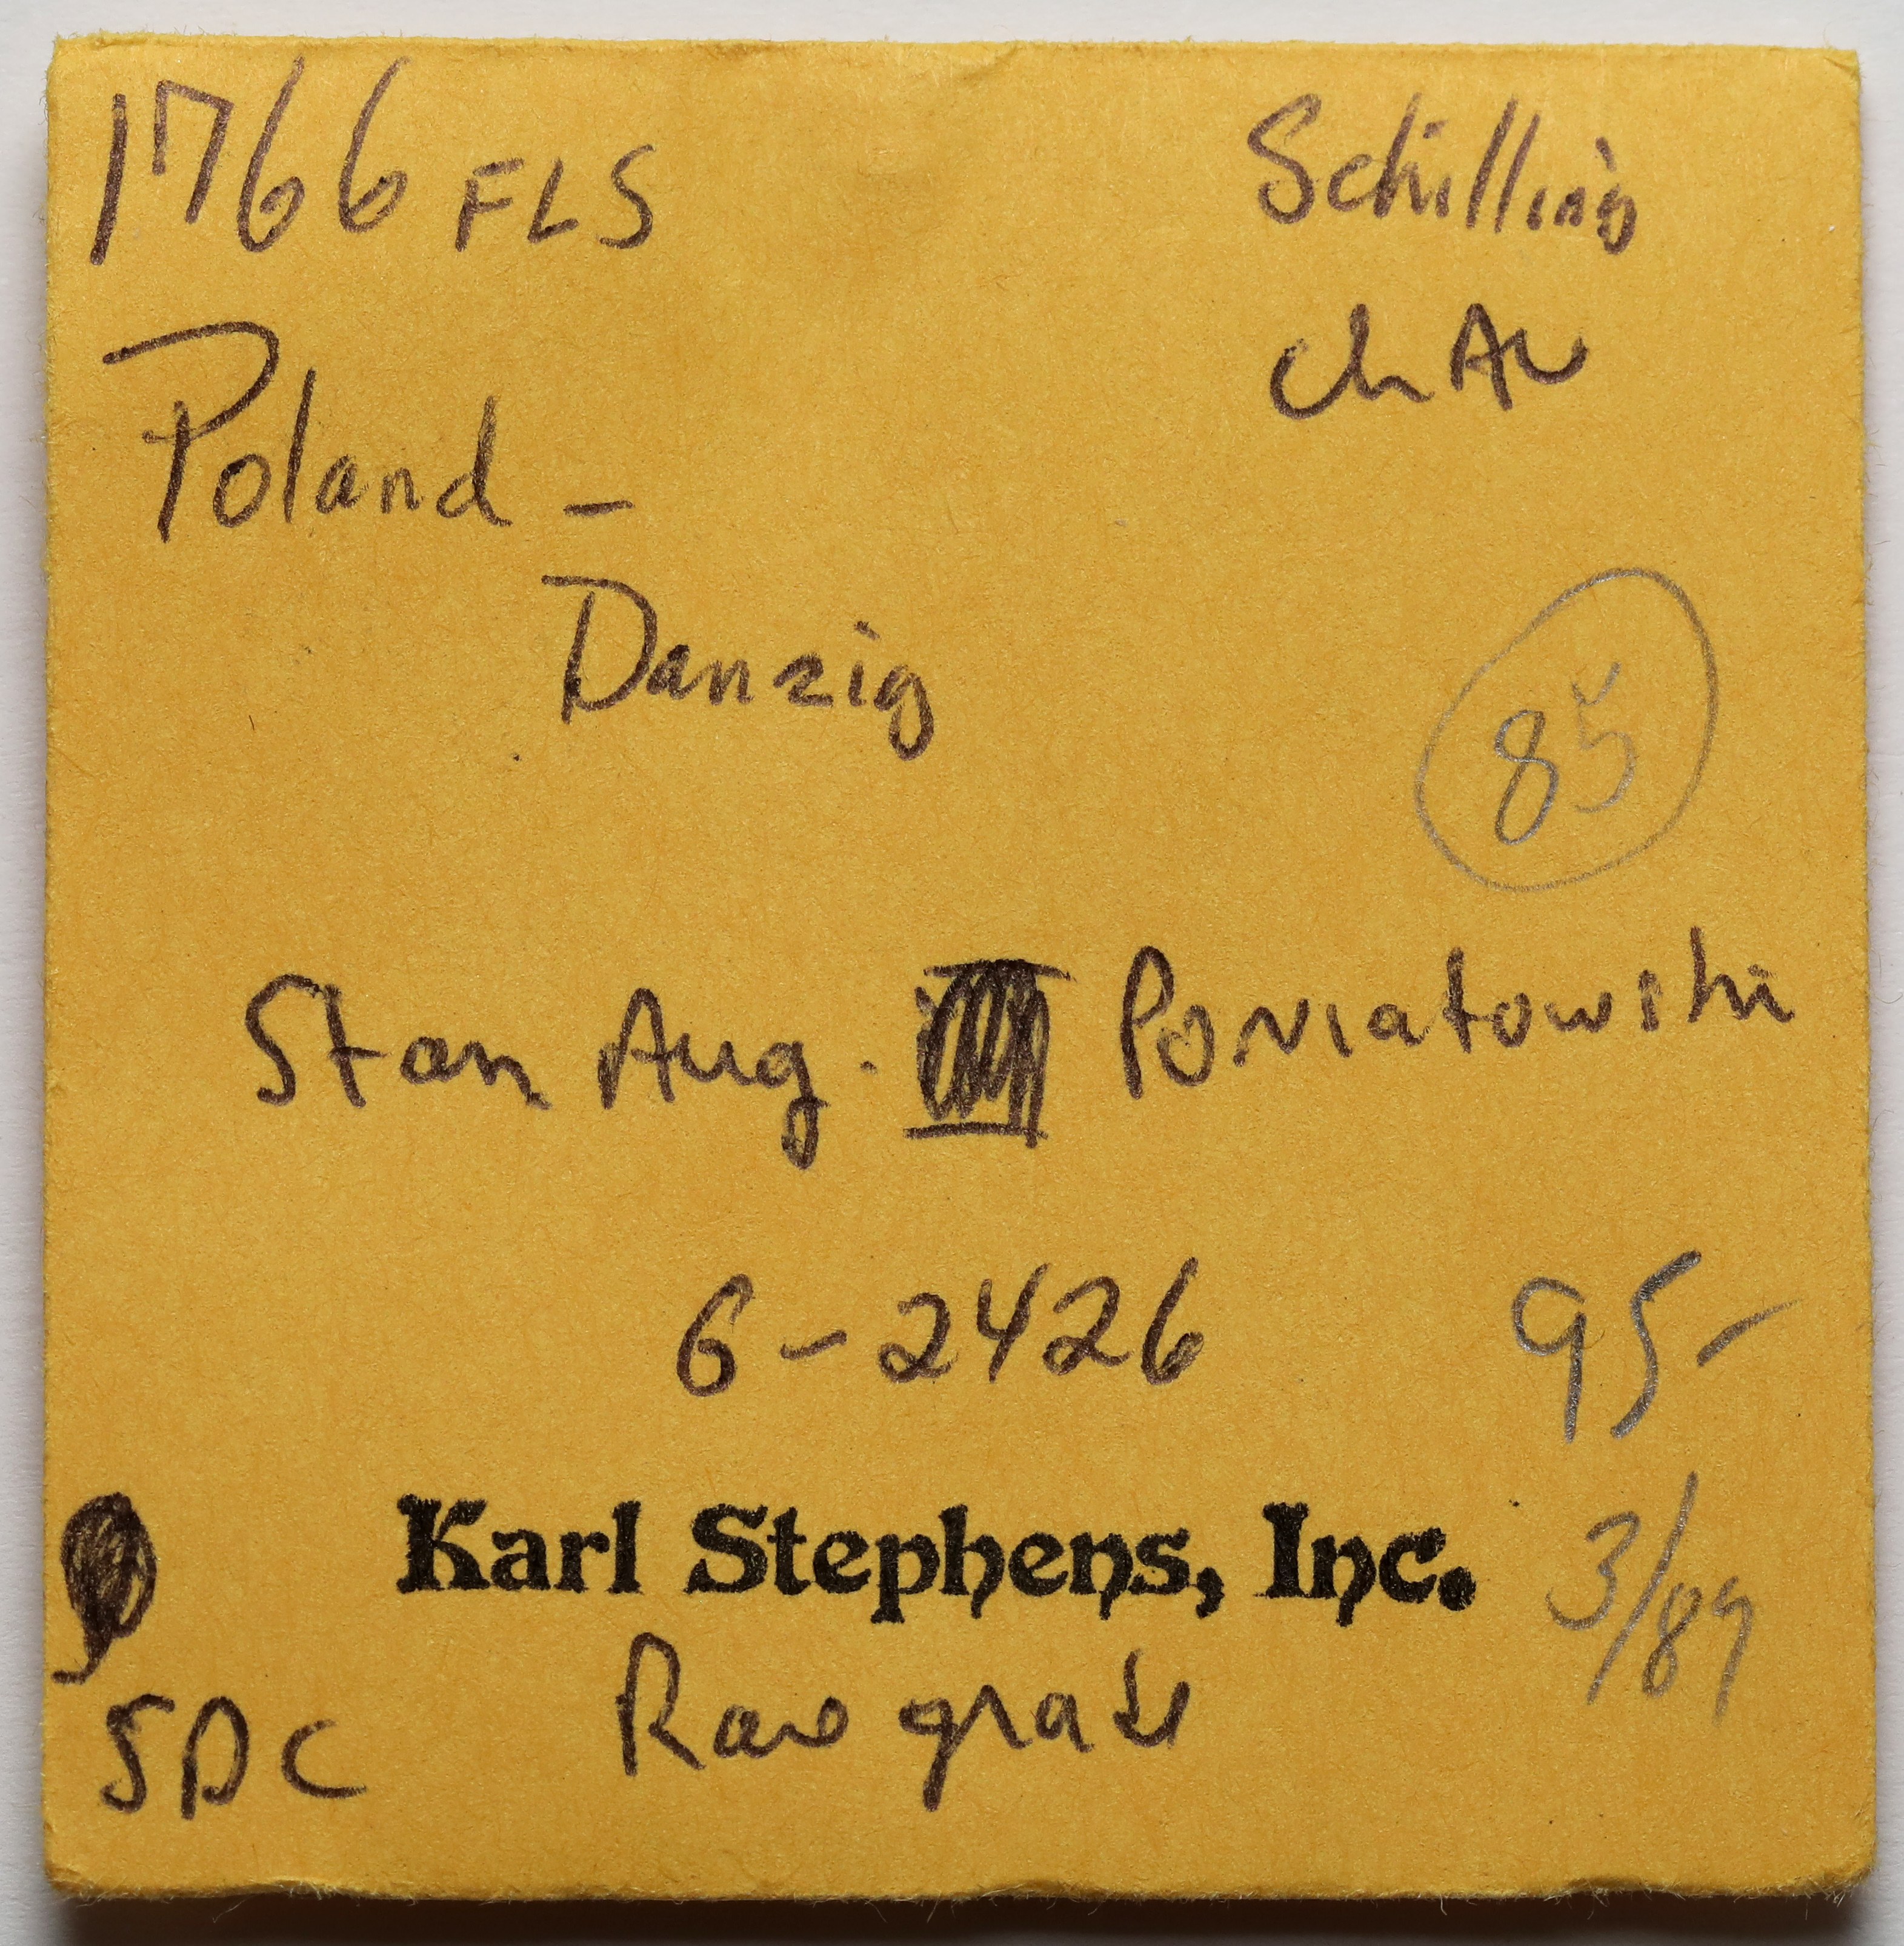 1766 FLS Schilling
Ch AU
Poland -
Danzig
85
Stan Aug. Poniatowski
G-2426 95-
Karl Stephens, Inc. 3/89
SDC Rare grade